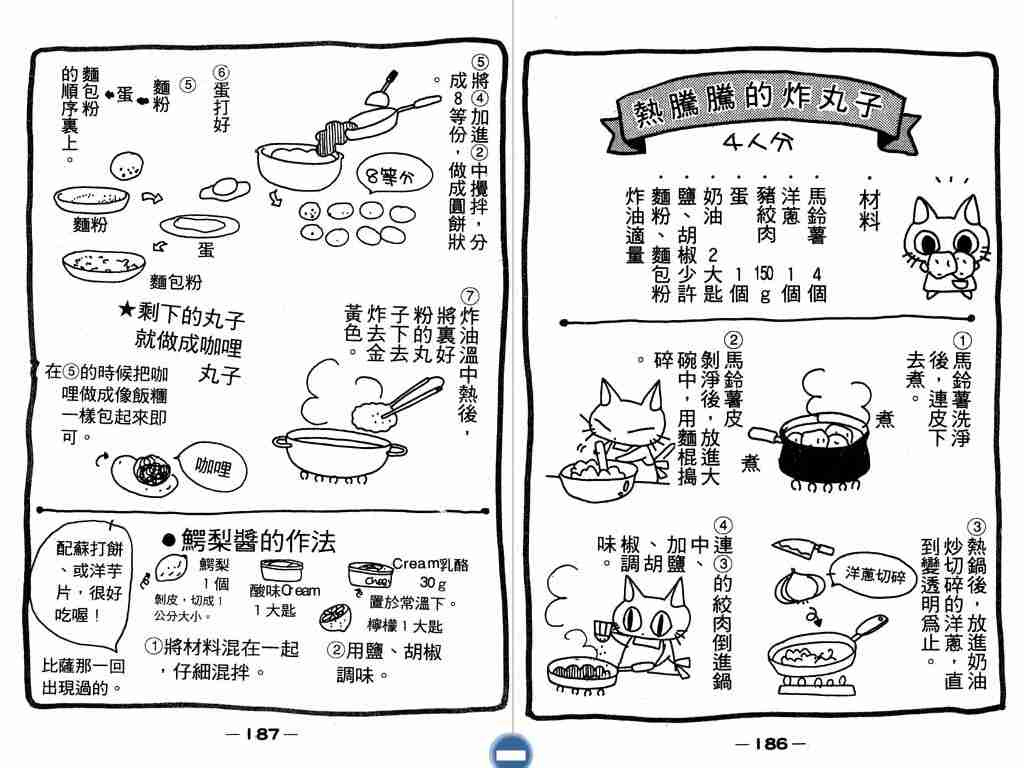 熱騰騰的炸丸子
4人分
・材料
・馬鈴薯 4個
・洋蔥 1個
・豬絞肉 150g
・蛋 1個
・奶油 2大匙
・鹽、胡椒少許
・麵粉、麵包粉
炸油適量
①馬鈴薯洗淨
後，連皮下
去煮。
煮
煮
②馬鈴薯皮
剝淨後，放進大
碗中，用麵棍搗
碎。
③熱鍋後，放進奶油
炒切碎的洋蔥，直
到變透明爲止。
洋蔥切碎
④連③的絞肉倒進鍋
中、加鹽、
胡椒調
味。
—186—
⑤將④加進②中攪拌，分
成8等份，做成圓餅狀
。
8等分
⑥蛋打好
⑤
麵粉
蛋
麵包粉
的順序裏上。
麵粉
蛋
麵包粉
⑦炸油溫中熱後，
將裏好
粉的丸
子下去
炸去金
黃色。
★剩下的丸子
就做成咖哩
丸子
在⑤的時候把咖
哩做成像飯糰
一樣包起來即
可。
咖哩
●鱷梨醬的作法
鱷梨
1個
剝皮，切成1
公分大小。
酸味Cream
1大匙
Cream乳酪
30g
Chee
置於常溫下。
檸檬1大匙
①將材料混在一起
，仔細混拌。
②用鹽、胡椒
調味。
配蘇打餅
、或洋芋
片，很好
吃喔！
比薩那一回
出現過的。
—187—